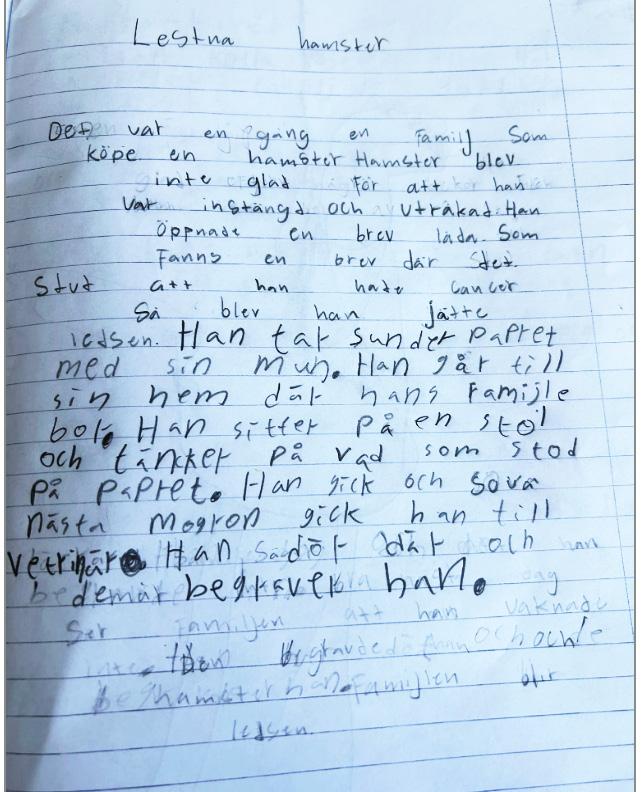 Lestna hamster
Det var en gång en Familj Som
köpe en hamster Hamster blev
inte glad För att han
Var instängd och utråkad. Han
Öppnade en brev låda. Som
Fanns en brev där Stet.
Stud att han hade cancer
Så blev han jätte
ledsen. Han tar sunder papret
med sin mun. Han går till
sin hem där hans Familje
bor. Han sitter på en stol
och täncker på vad som stod
på papret. Han gick och sova
nästa mogron gick han till
vetrinär. Han dör där och
begraver han.
Ser Familjen att han vaknade
inte.
hamster han. Familjen blir
ledsen.